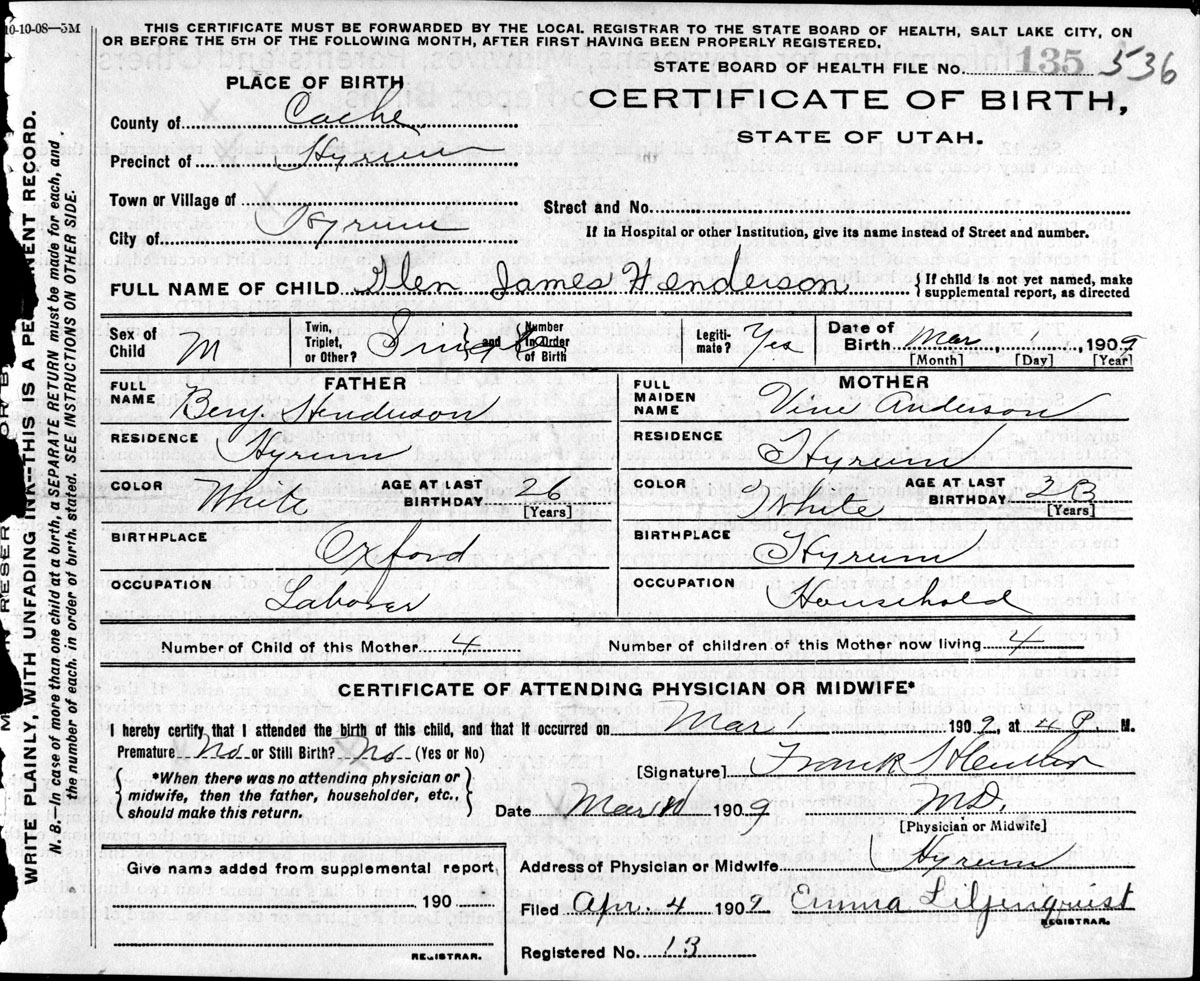 10-10-08—5M
THIS CERTIFICATE MUST BE FORWARDED BY THE LOCAL REGISTRAR TO THE STATE BOARD OF HEALTH, SALT LAKE CITY, ON
OR BEFORE THE 5TH OF THE FOLLOWING MONTH, AFTER FIRST HAVING BEEN PROPERLY REGISTERED.
STATE BOARD OF HEALTH FILE NO. 135 536
PLACE OF BIRTH
CERTIFICATE OF BIRTH,
STATE OF UTAH.
County of Cache
Precinct of Hyrum
Town or Village of
Street and No.
City of Hyrum
If in Hospital or other Institution, give its name instead of Street and number.
FULL NAME OF CHILD Glen James Henderson { If child is not yet named, make
supplemental report, as directed
Sex of Child M
Twin, Triplet, or Other? Single } and { Number in Order of Birth
Legitimate? Yes
Date of Birth Mar, 1, 1909
[Month] [Day] [Year]
FATHER
FULL NAME Benj. Henderson
RESIDENCE Hyrum
COLOR White
AGE AT LAST BIRTHDAY 26
[Years]
BIRTHPLACE Oxford
OCCUPATION Laborer
MOTHER
FULL MAIDEN NAME Vine Anderson
RESIDENCE Hyrum
COLOR White
AGE AT LAST BIRTHDAY 23
[Years]
BIRTHPLACE Hyrum
OCCUPATION Household
Number of Child of this Mother 4 Number of children of this Mother now living 4
CERTIFICATE OF ATTENDING PHYSICIAN OR MIDWIFE*
I hereby certify that I attended the birth of this child, and that it occurred on Mar 1 1909, at 4 P. M.
Premature No or Still Birth? No (Yes or No)
{ *When there was no attending physician or
midwife, then the father, householder, etc.,
should make this return. }
[Signature] Frank
Date Mar 1909 M.D.
[Physician or Midwife]
Address of Physician or Midwife Hyrum
Give name added from supplemental report
190
REGISTRAR.
Filed Apr. 4 1909 Emma Liljenquist
REGISTRAR.
Registered No. 13
WRITE PLAINLY, WITH UNFADING INK--THIS IS A PERMANENT RECORD.
N. B. In case of more than one child at a birth, a SEPARATE RETURN must be made for each, and
the number of each, in order of birth, stated. SEE INSTRUCTIONS ON OTHER SIDE.